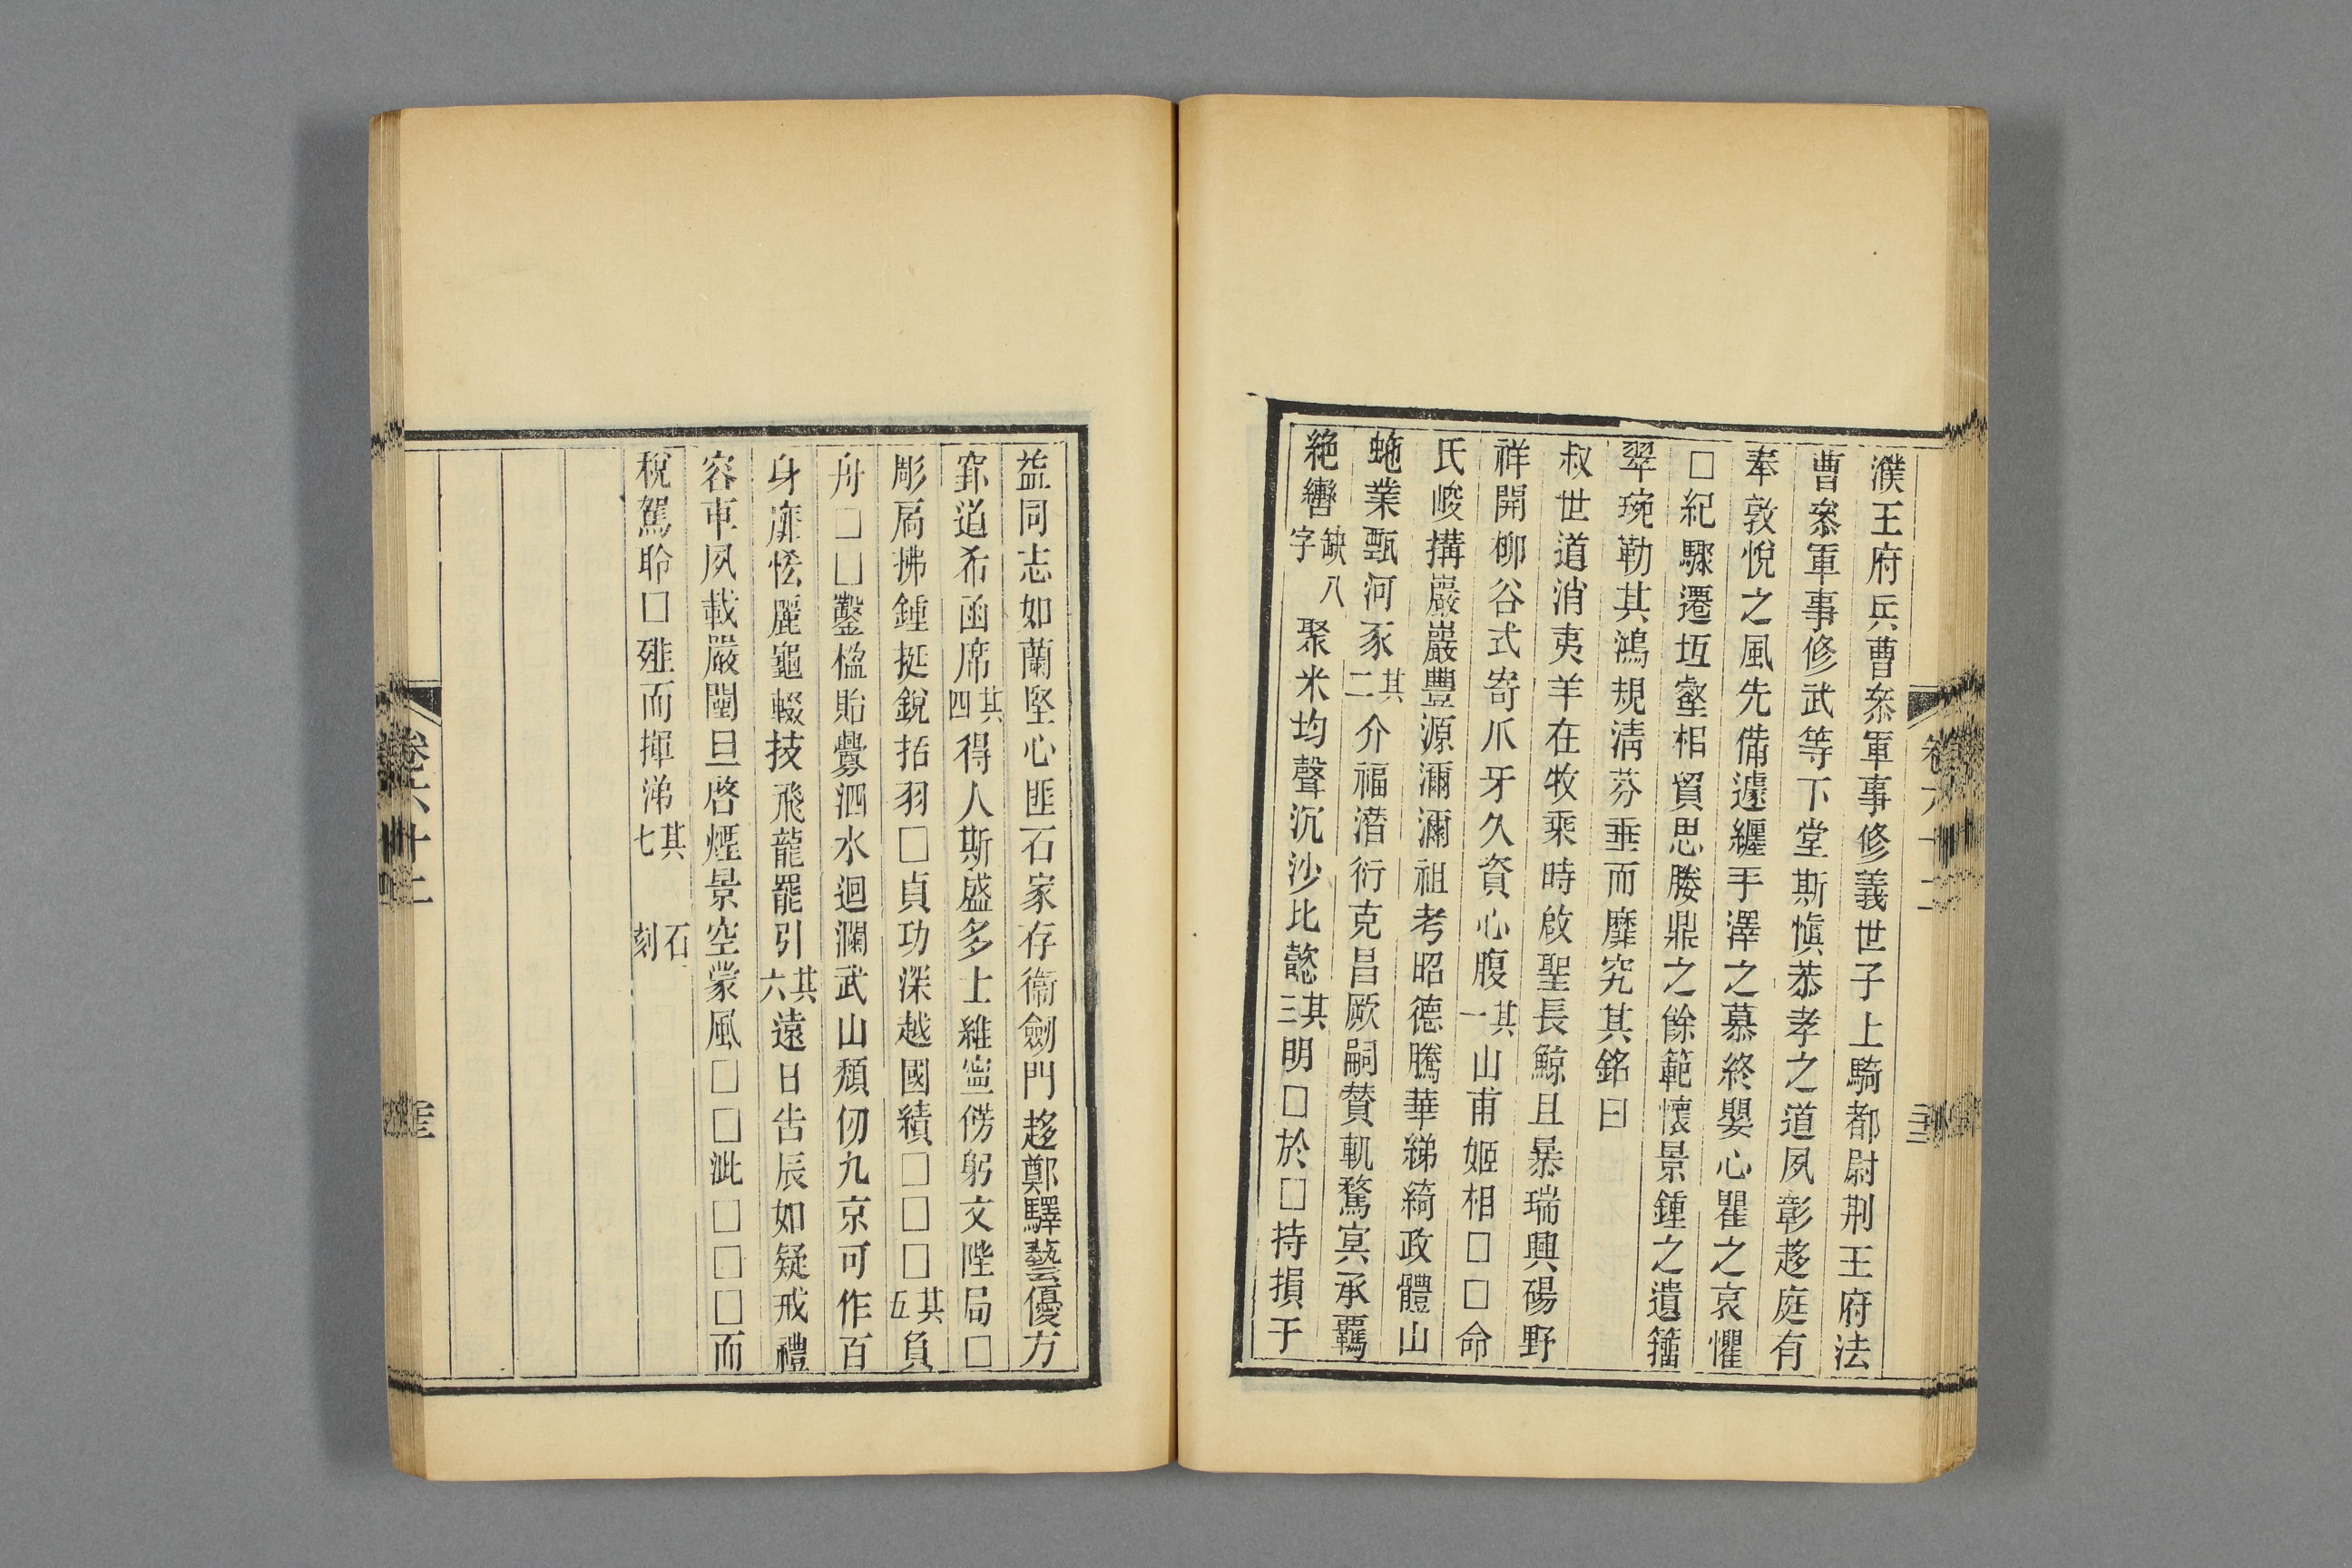 濮王府兵曹叅軍事修義世子上騎都尉荆王府法
曹叅軍事修武等下堂斯愼恭孝之道夙彰趍庭有
奉敦悅之風先備遽纒手澤之慕終嬰心瞿之哀懼
□紀驟遷垣壑相貿思勝鼎之餘範懷景鍾之遺籀
翠琬勒其鴻規清芬垂而靡究其銘曰
叔世道消夷羊在牧乘時啟聖長鯨且暴瑞興碭野
祥開柳谷式寄爪牙久資心腹其一山甫姬相□□命
氏峻搆巖巖豐源瀰瀰祖考昭德騰華綈綺政體山
虵業甄河豕其二介福潛衍克昌厥嗣賛軌騖㝠承羈
絶轡缺八字聚米均聲沉沙比懿其三明□於□持損于
益同志如蘭堅心匪石家存衞劒門趍鄭驛藝優方
窮道希函席其四得人斯盛多士維寍傍躬文陛局□
彫扃拂鍾挺銳括羽□貞功深越國績□□□其五負
舟□□鑿楹貽釁泗水迴瀾武山頽仞九京可作百
身靡恡麗龜輟技飛龍罷引其六遠日告辰如疑戒禮
容車夙載嚴闈旦啓煙景空蒙風□□泚□□□而
稅駕聆□雖而揮涕其七 石刻
卷六十二
卷六十二